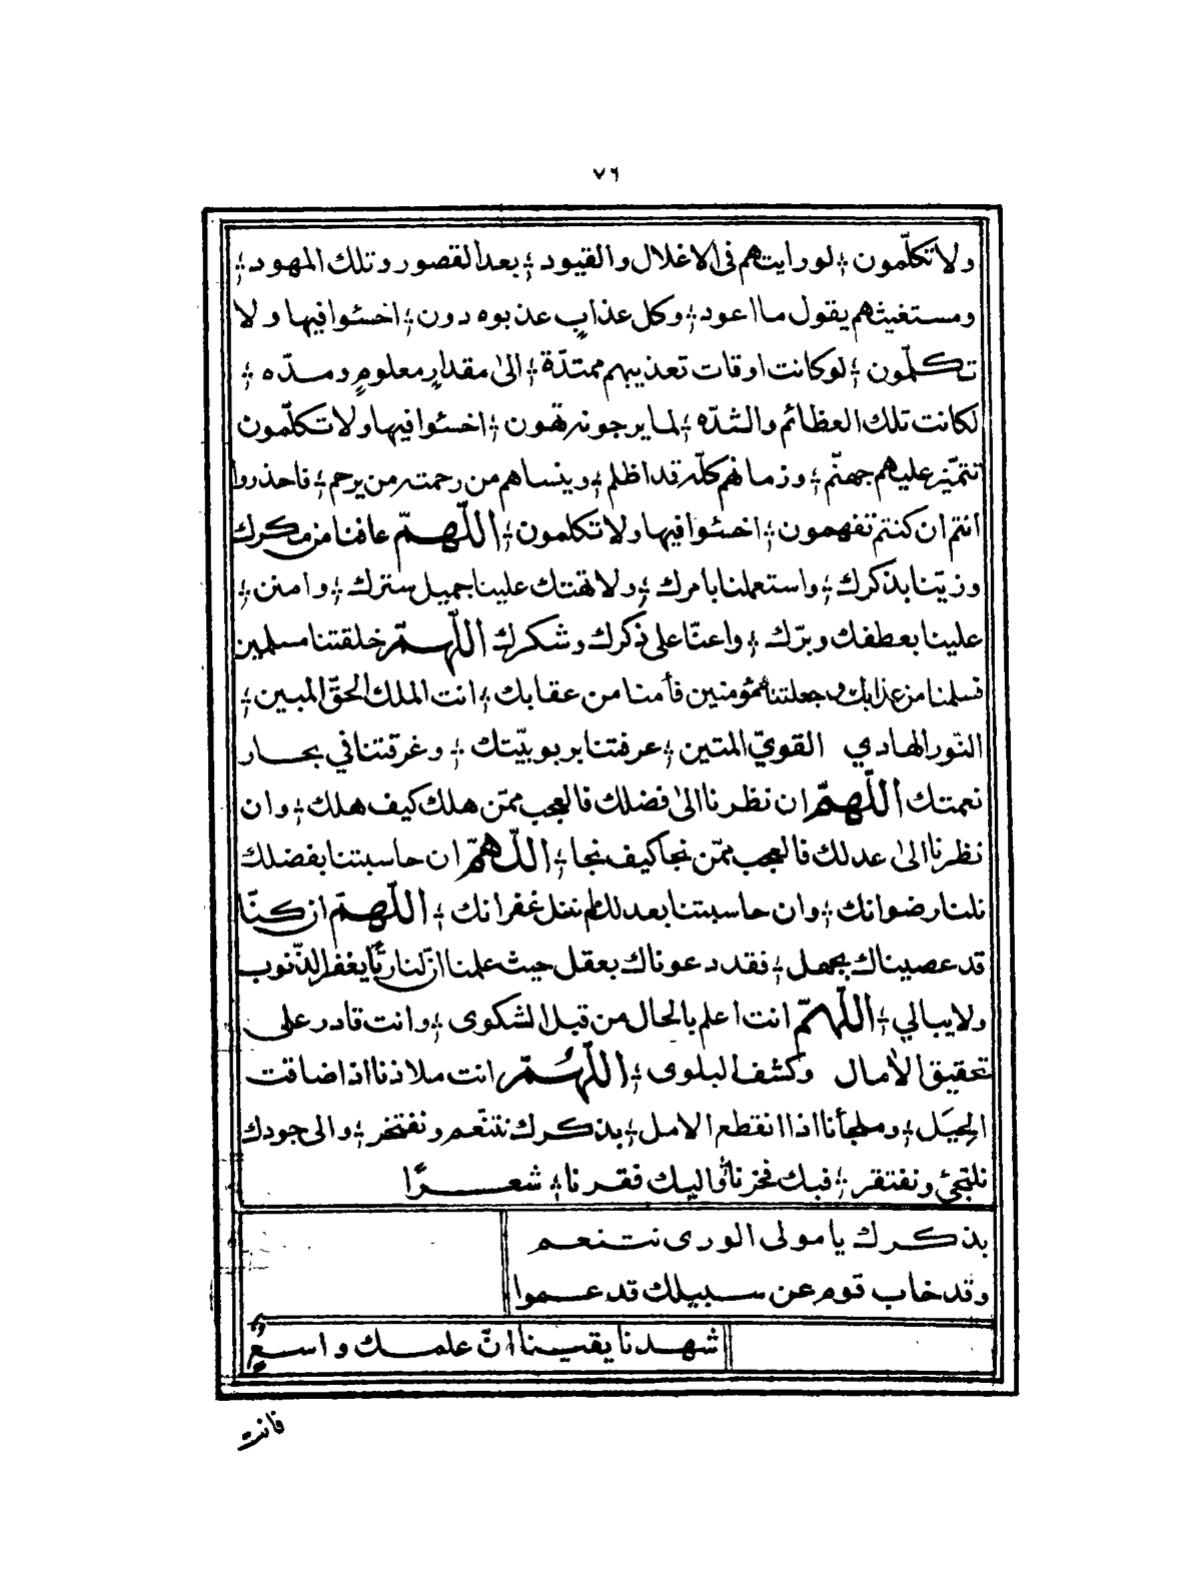 ٧٦
ولا تكلّمون ؛ لو رايتهم فى الاغلال والقيود ؛ بعد القصور وتلك المهود ؛
ومستغيثهم يقول ما اعود ؛ وكل عذابٍ عذبوه دون ؛ اخسئوا فيها ولا
تكلّمون ؛ لو كانت اوقات تعذيبهم ممتدّة ؛ الىٰ مقدارٍ معلومٍ ومدّه ؛
لكانت تلك العظائم والشدّه ؛ لما يرجونه تهون ؛ اخسئوا فيها ولا تكلّمون
تتميّز عليهم جهنّم ؛ وزمانهم كلّه قد اظلم ؛ وينساهم من رحمته من يرحم ؛ فاحذروا
انتم ان كنتم تفهمون ؛ اخسئوا فيها ولا تكلمون ؛ اللّهمّ عافنا من مكرك
وزيّنا بذكرك ؛ واستعملنا بامرك ؛ ولا تهتك علينا جميل سترك ؛ وامنن ؛
علينا بعطفك وبرّك ؛ واعنّا على ذكرك وشكرك اللّهمّ خلقتنا مسلمين
فسلمنا من عذابك وجعلتنا مؤمنين فأمنا من عقابك ؛ انت الملك الحقّ المبين ؛
النّور الهادي القويّ المتين ؛ عرفتنا بربوبيّتك ؛ وغرقتنا في بحار
نعمتك اللّهمّ ان نظرنا الىٰ فضلك فالعجب ممّن هلك كيف هلك ؛ وان
نظرنا الىٰ عدلك فالعجب ممّن نجا كيف نجا ؛ اللّهمّ ان حاسبتنا بفضلك
نلنا رضوانك ؛ وان حاسبتنا بعدلك لم ننل غفرانك ؛ اللّهمّ ان كنّا
قد عصيناك بجهل ؛ فقد دعوناك بعقل حيث علمنا انّ لنا ربًّا يغفر الذّنوب
ولا يبالي ؛ اللّهمّ انت اعلم بالحال من قبل الشكوى ؛ وانت قادر على
تحقيق الأمال وكشف البلوى ؛ اللّهمّ انت ملاذنا اذا ضاقت
الحِيَل ؛ وملجأنا اذا انقطع الامل ؛ بذكرك نتنّعم ونفتخر ؛ والى جودك
نلتجئ ونفتقر ؛ فبك فخرنا واليك فقرنا ؛ شعرًا
بذكرك يا مولى الورى نتنعم
وقد خاب قوم عن سبيلك قد عموا
شهدنا يقينا انّ علمك واسعٌ
فانت